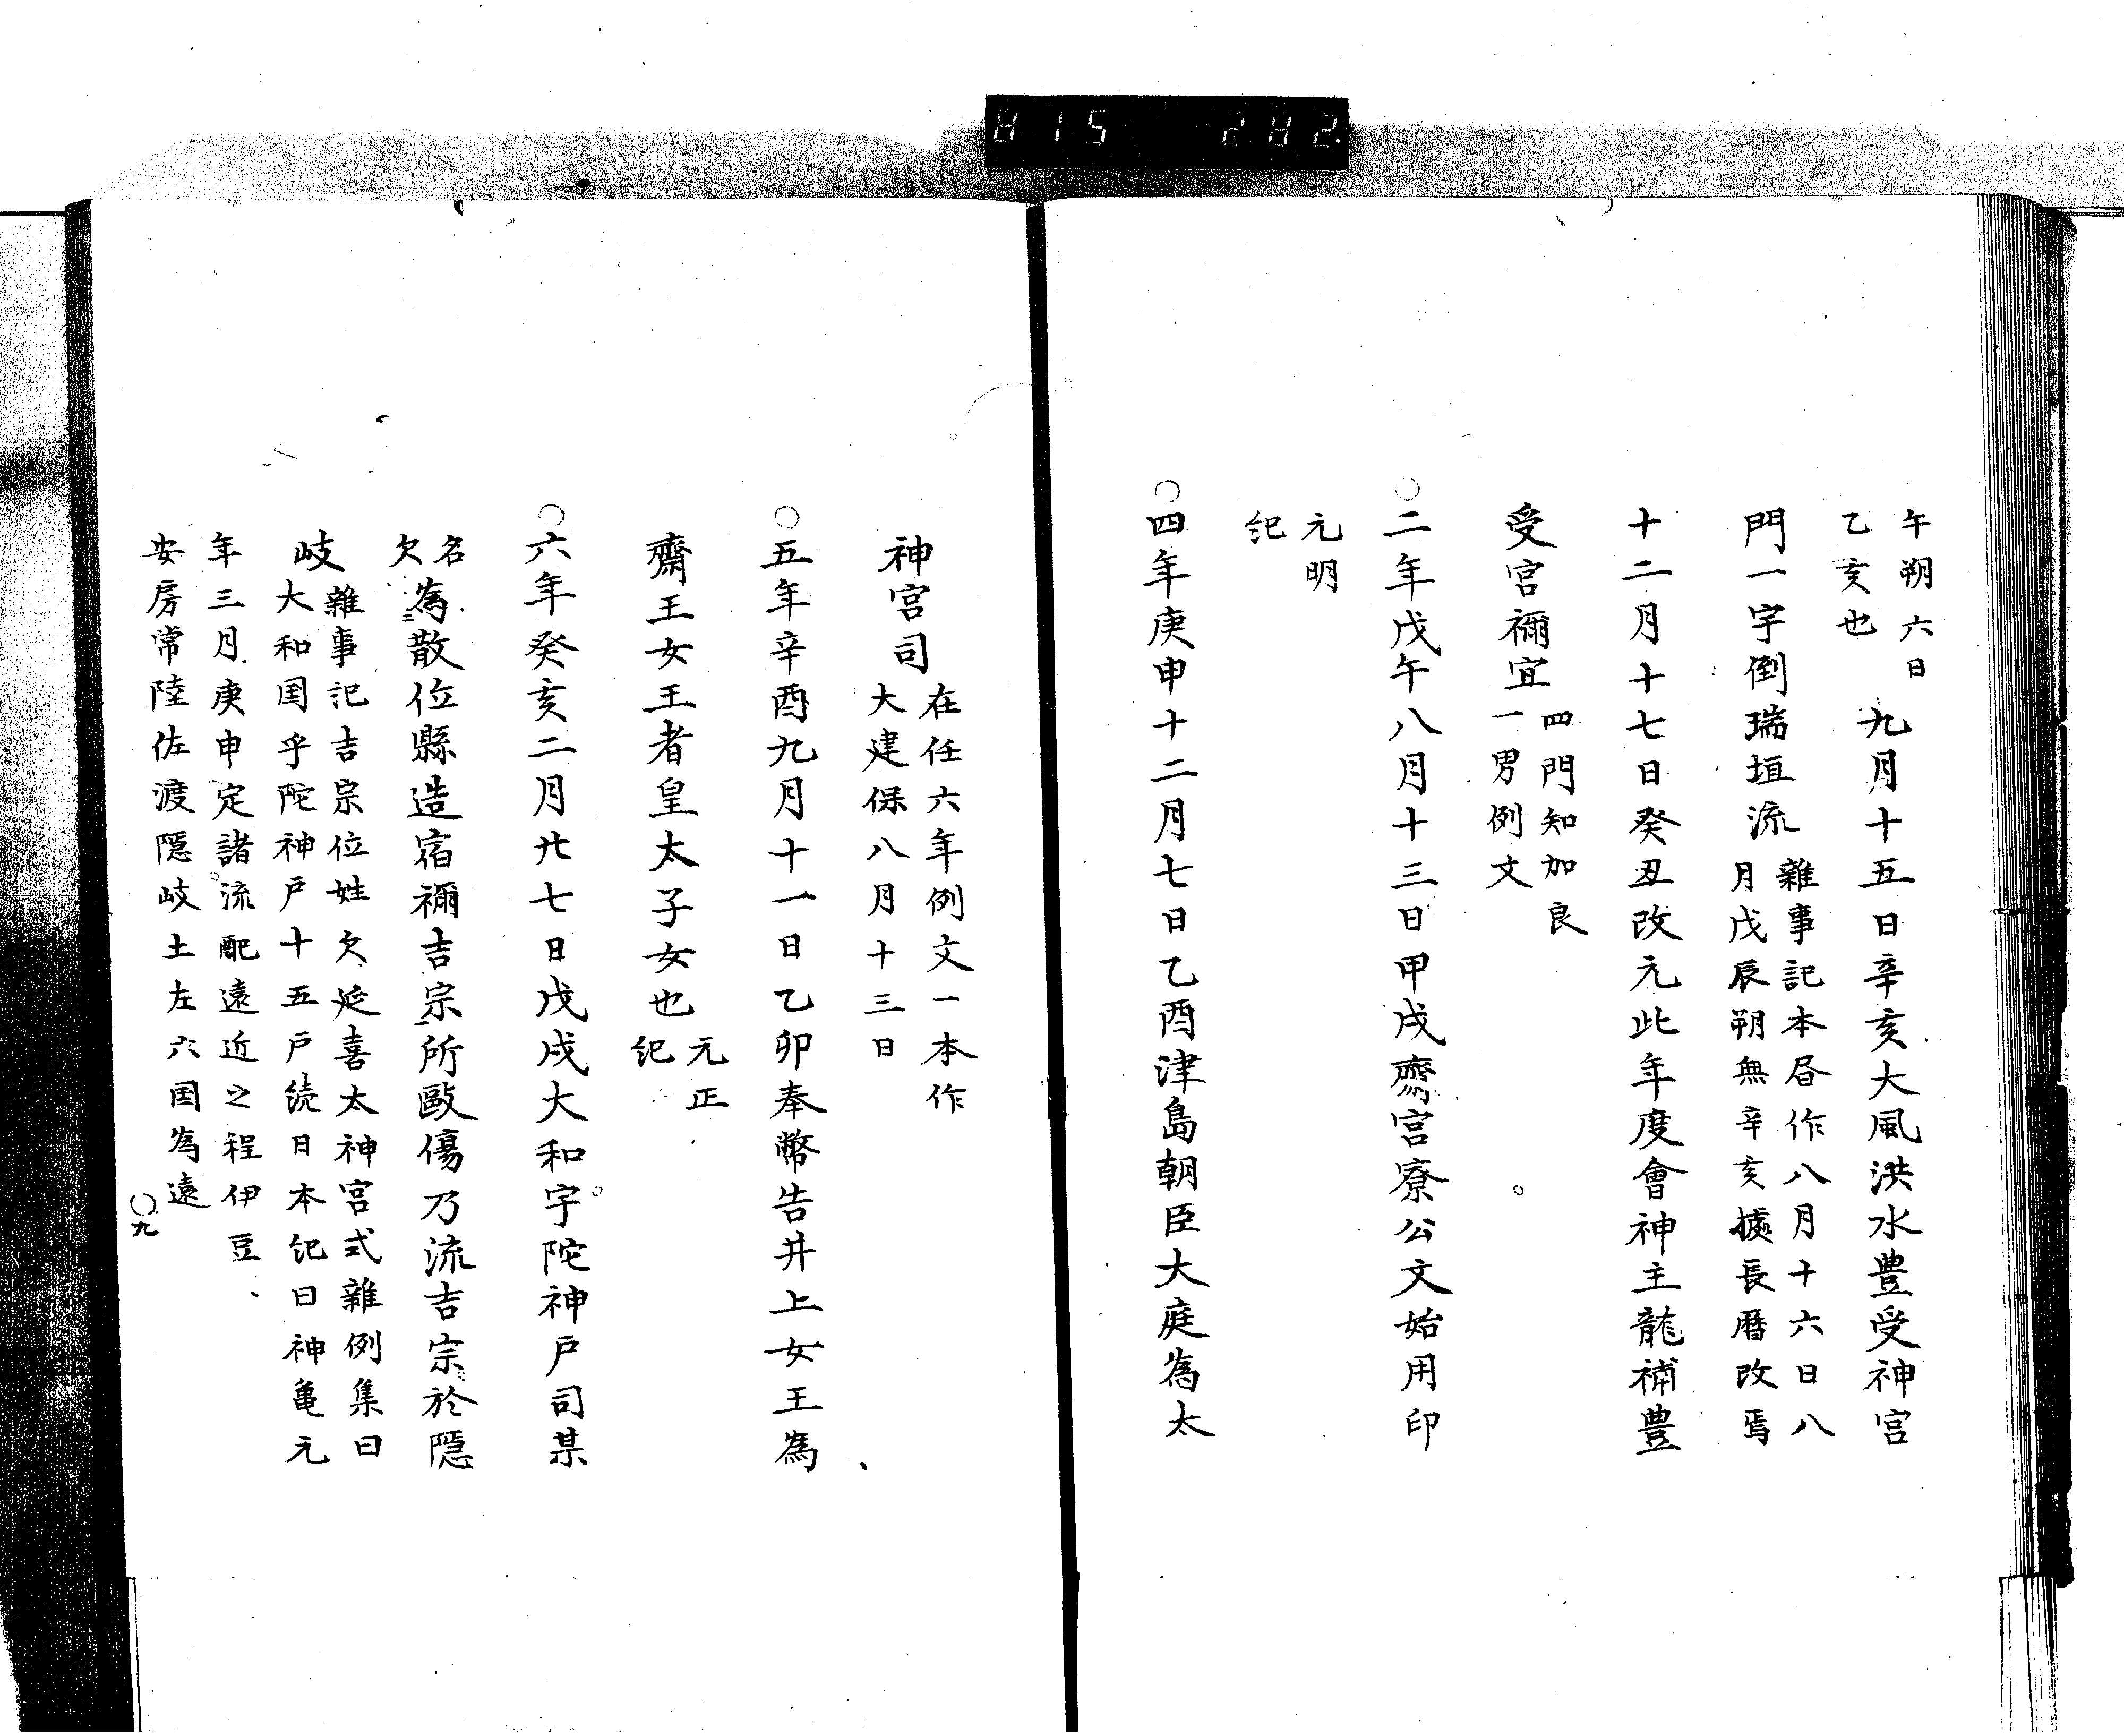 午朔六日
乙亥也
九月十五日辛亥大風洪水豊受神宮
門一宇倒瑞垣流
雜事記本昏作八月十六日八
月戊辰朔無辛亥據長暦改焉
十二月十七日癸丑改元此年度會神主龍補豊
受宮禰宜
四門知加良
一男例文
○二年戊午八月十三日甲戌齋宮寮公文始用印
元明
紀
○四年庚申十二月七日乙酉津島朝臣大庭為太
神宮司
在任六年例文一本作
大建保八月十三日
○五年辛酉九月十一日乙卯奉幣告井上女王為
齋王女王者皇太子女也
元正
紀
○六年癸亥二月廿七日戊戌大和宇陀神戸司某
名
欠
為散位縣造宿禰吉宗所毆傷乃流吉宗於隠
岐
雜事记吉宗位姓欠延喜太神宮式雜例集曰
大和国宇陀神戸十五戸続日本纪曰神亀元
年三月庚申定諸流配遠近之程伊豆
安房常陸佐渡隠岐土左六国為遠
○九
815 282